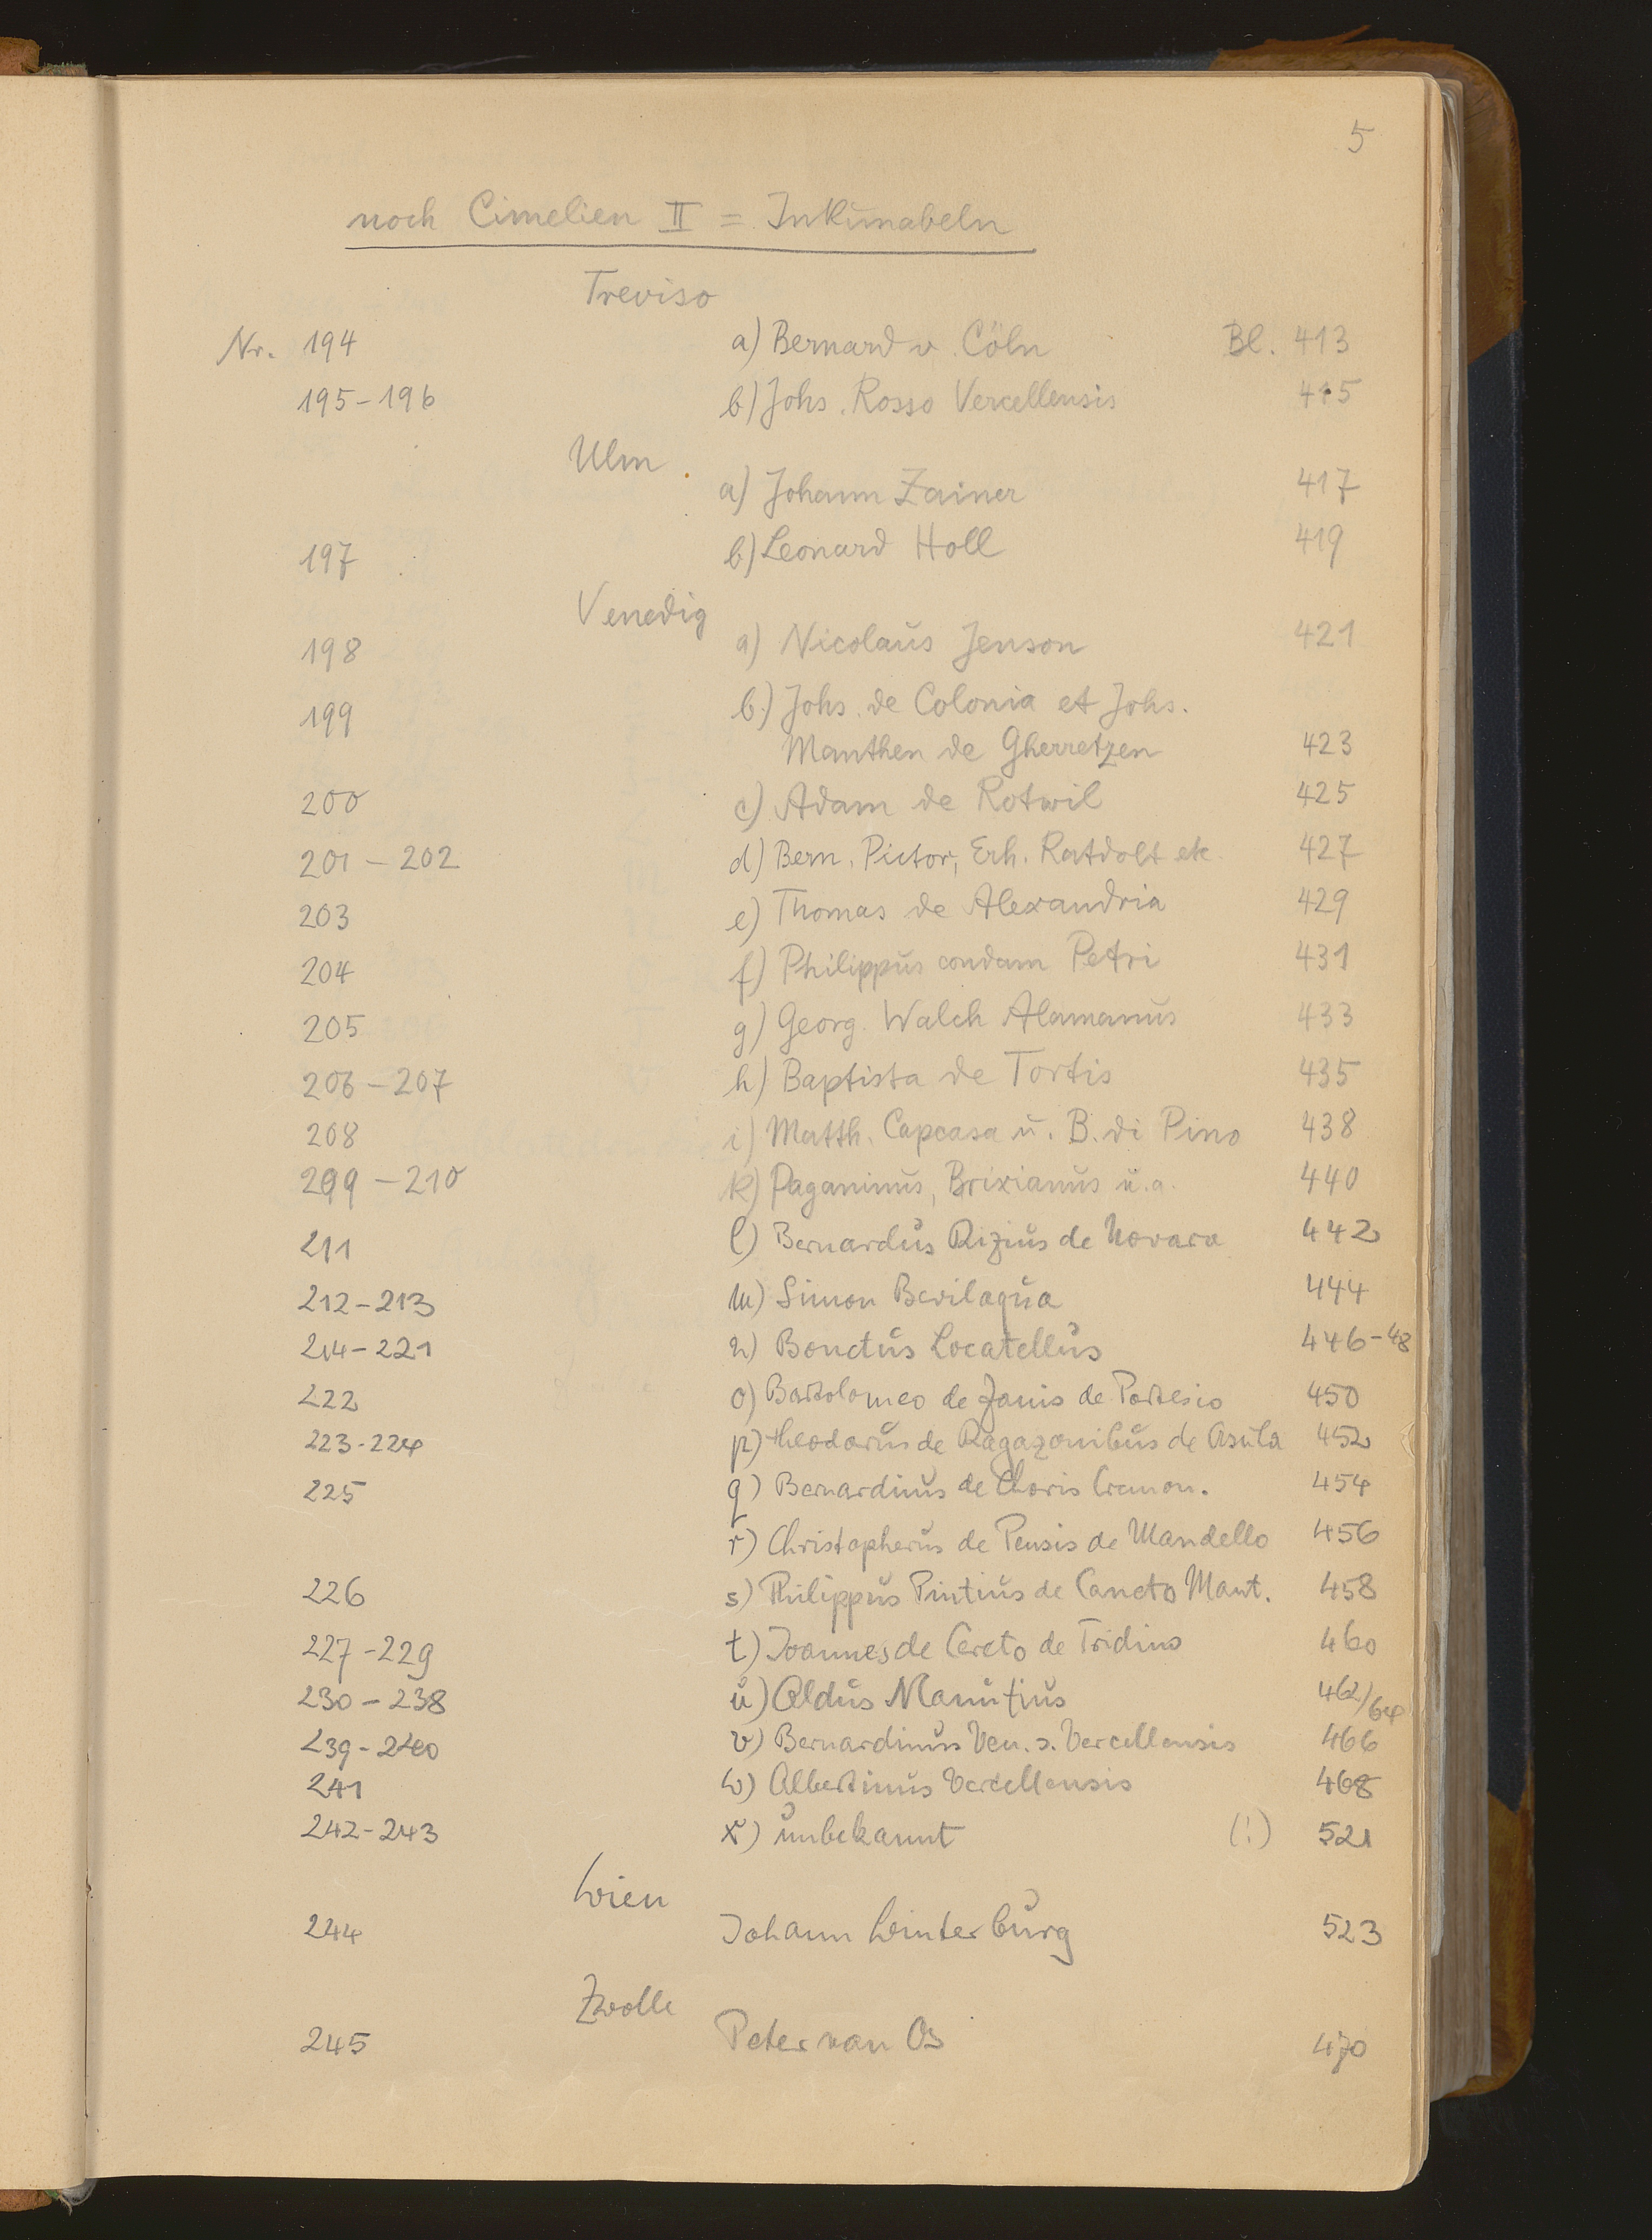 5
noch Cimelien II = Inkunabeln
Treviso
Nr. 194 a) Bernard v. Cöln Bl. 413
195-196 b) Johs. Rosso Vercellensis 415
Ulm
a) Johann Zainer 417
197 b) Leonard Holl 419
Venedig
198 a) Nicolaus Jenson 421
199 b.) Johs. de Colonia et Johs.
Manthen de Gherretzen 423
200 c) Adam de Rotwil 425
201 - 202 d) Bern. Pictor, Erh. Ratdolt etc. 427
203 e) Thomas de Alexandria 429
204 f) Philippus condam Petri 431
205 g) Georg. Walch Alamanus 433
206 - 207 h) Baptista de Tortis 435
208 i) Matth. Capcasa u. B. di Pino 438
209 - 210 k) Paganinus, Brixianus u.a. 440
211 l) Bernardus Rizius de Novara 442
212-213 m) Simon Bevilaqua 444
214-221 n) Bonetus Locatellus 446-48
222 o) Bartolomeo de Zanis de Portesio 450
223-224 p) Theodorus de Ragazonibus de Asula 452
225 q) Bernardinus de Choris Cremon. 454
r) Christopherus de Pensis de Mandello 456
226 s) Philippus Pintius de Caneto Mant. 458
227-229 t) Joannes de Cereto de Tridino 460
230 - 238 u) Aldus Manutius 462/64
239-240 v) Bernardinus Ven. s. Vercellensis 466
241 w) Albertinus Vercellensis 468
242-243 x) unbekannt (!) 521
Wien
244 Johann Winterburg 523
Zwolle
245 Peter van Os 470